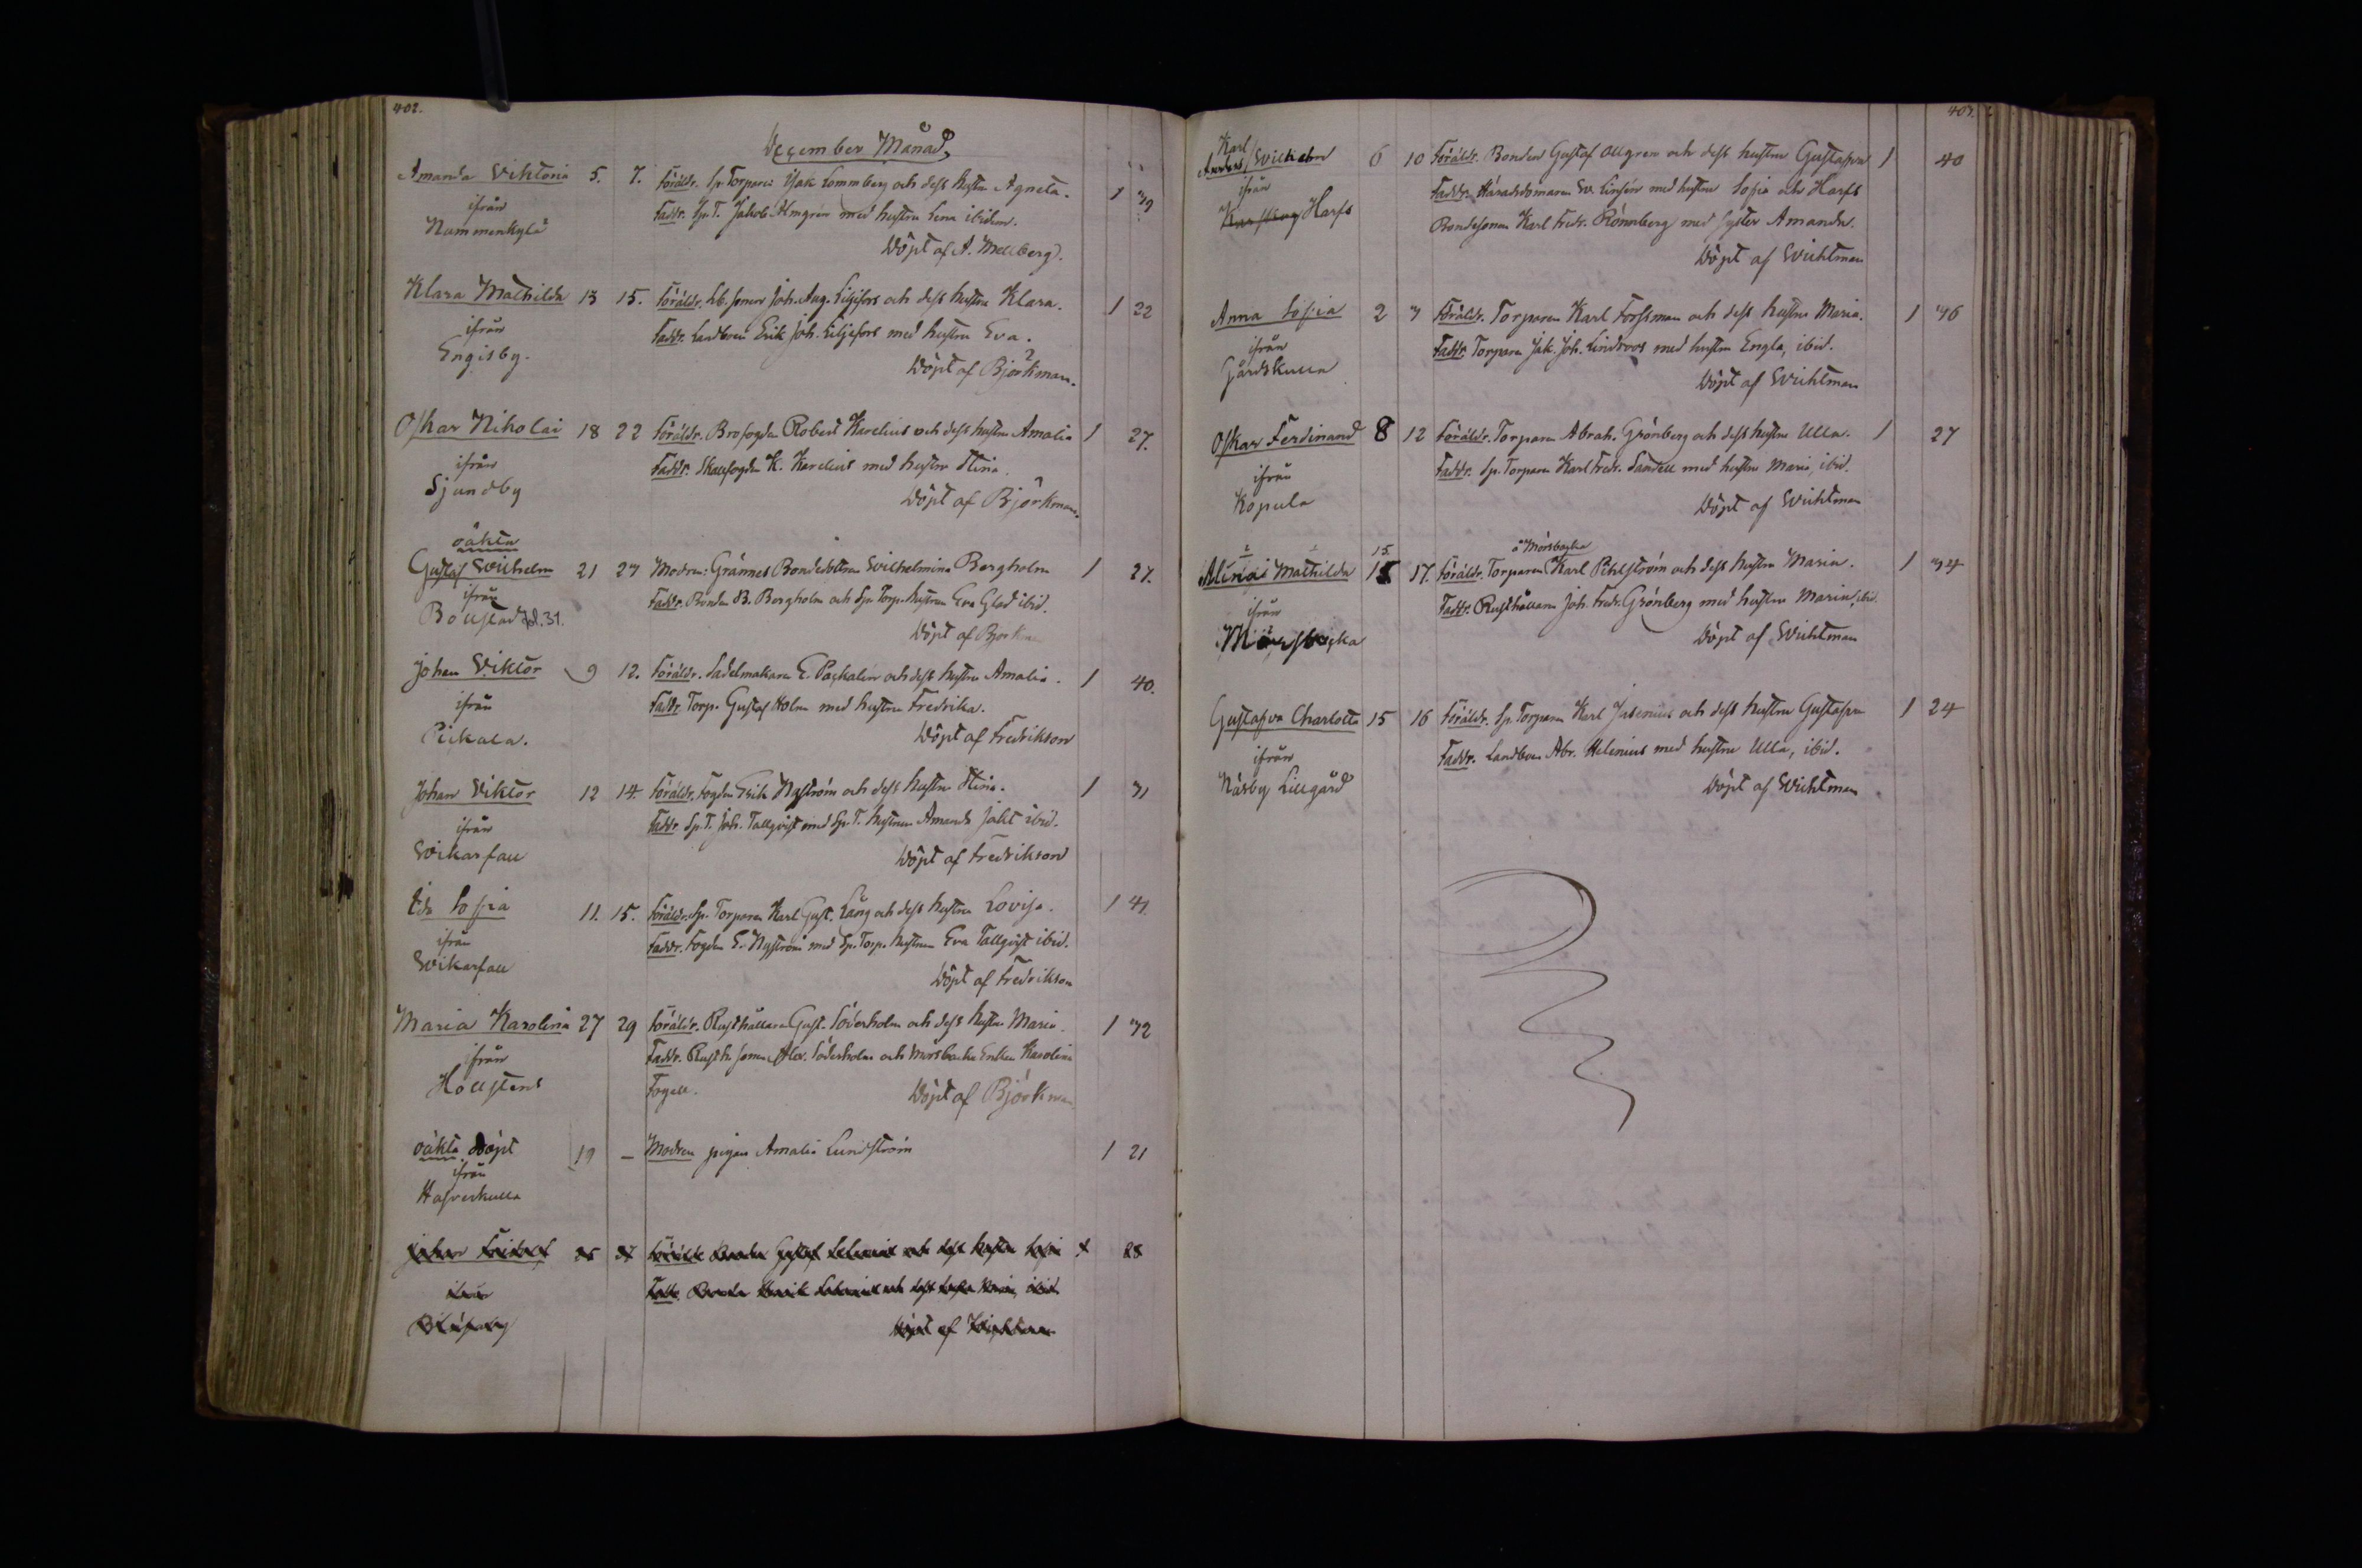 402.
December Månad,
Amanda Viktoria 5. 7. Föräldr. Sp. Torparen Isak Lommberg och dess hustru Agneta. 1 39
ifrån Faddr. Sp. T. Jakob Almgren med hustru Lena ibidem.
Nummenkylä
Döpt af A. Mellberg.
Klara Mathilda 13 15. Föräldr. Lb. sonen Joh. Aug. Liljefors och dess hustru Klara. 1 22
ifrån Faddr. Landboen Erik Joh. Liljefors med hustru Eva.
Engisby.
Döpt af Björkman.
Oskar Nikolai 18 22 Föräldr. Brofogden Robert Karelius och dess hustru Amalia 1 27.
ifrån Faddr. Skallfogden K. Karelius med hustru Stina.
Sjundby
Döpt af Björkman.
oäkta
Gustaf Wilhelm 21 27 Modren: Grännes Bondedottren Wilhelmina Bergholm 1 27.
ifrån Faddr. Bonden B. Bergholm och Sp. Torp. hustrun Eva Glad ibid.
Böllstad fol. 31.
Döpt af Björkman
Johan Viktor 9 12. Föräldr. Sadelmakaren E. Packalén och dess hustru Amalia. 1 40.
ifrån Faddr. Torp. Gustaf Holm med hustru Fredrika.
Pickala.
Döpt af Fredrikson
Johan Viktor 12 14. Föräldr. Fogden Erik Nyström och dess hustru Stina. 1 31
ifrån Faddr. Sp. T. Joh. Tallqvist med Sp. T. hustrun Amanda Jakt ibid.
Wikarfall
Döpt af Fredrikson
Ida Sofia 11. 15. Föräldr. Sp. Torparen Karl Gust. Lång och dess hustru Lovisa. 1 41
ifrån Faddr. Fogden E. Nyström med Sp. Torp. hustrun Eva Tallqvist ibid.
Wikarfall
Döpt af Fredrikson
Maria Karolina 27 29 Föräldr. Rusthållaren Gust. Söderholm och dess hustru Maria. 1 32
ifrån Faddr. Rusth. sonen Alex. Söderholm och Mörsbacka Enkan Karolina
Hollstens Fogell.
Döpt af Björkman
oäkta Döpt 19 — Modren pigan Amalia Lundström 1 21
ifrån
Hafverkulla
Johan Fridolf 25 27 Föräldr. Bonden Gustaf Selenius och dess hustru Sofia 1 28
ifrån Faddr. Bonden Henrik och dess hustru Maria, ibid.
Döpt af Wichtman
403.
Karl
Anders Wilhelm 6 10 Föräldr. Bonden Gustaf Allgren och dess hustru Gustafva 1 40
ifrån Faddr. Häradsdomaren W. Linsén med hustru Sofia och Harfs
Karskog Harfs Bondesonen Karl Fredr. Rönnberg med syster Amanda.
Döpt af Wichtman
Anna Sofia 2 7 Föräldr. Torparen Karl Forssman och dess hustru Maria. 1 36
ifrån Faddr. Torparen Jak. Joh. Lindroos med hustru Engla, ibid.
Gårdskulla
Döpt af Wichtman
Oskar Ferdinand 8 12 Föräldr. Torparen Abrah. Grönberg och dess hustru Ulla. 1 27
ifrån Faddr. Sp. Torparen Karl Fredr. Sandell med hustru Maria, ibid.
Kopula
Döpt af Wichtman
15. å Mörsbacka
Alina Mathilda 15 17. Föräldr. Torparen Karl Pihlström och dess hustru Maria. 1 34
ifrån Faddr. Rusthållaren Joh. Fredr. Grönberg med hustru Maria, ibid.
Mörsbacka
Döpt af Wichtman
Gustafva Charlotta 15 16 Föräldr. Sp. Torparen Karl Jusenius och dess hustru Gustafva 1 24
ifrån Faddr. Landboen Abr. Helenius med hustru Ulla, ibid.
Näsby Lillgård
Döpt af Wichtman